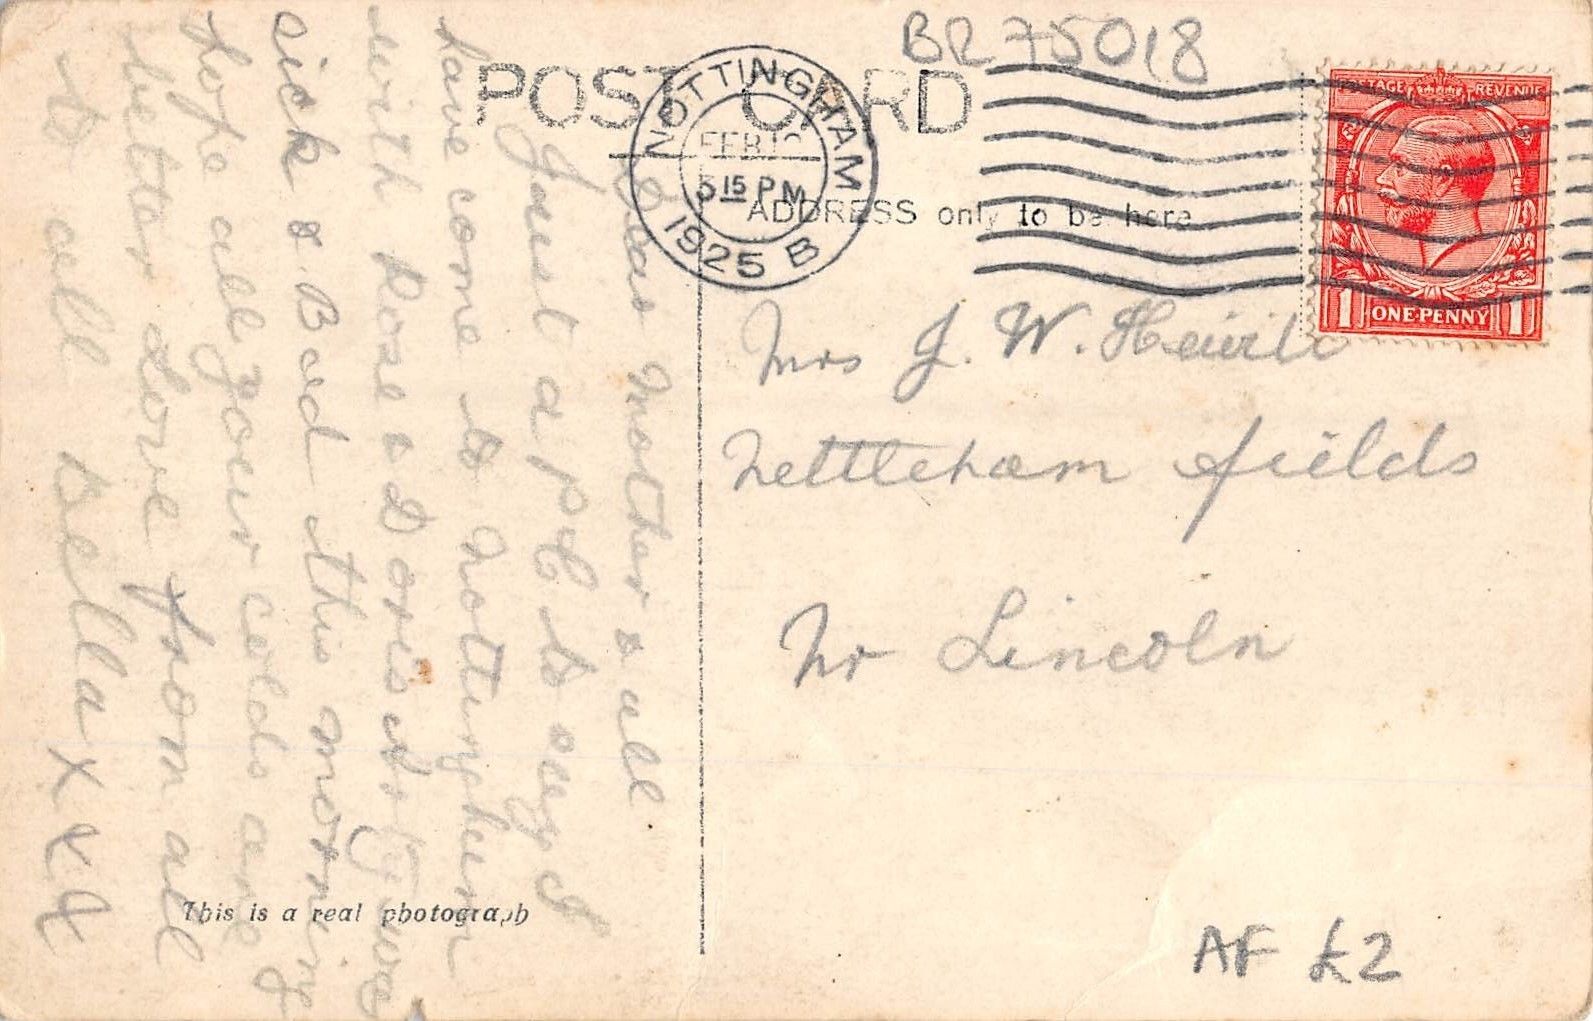 BR 75018
POST CARD
NOTTINGHAM
5 15 PM
1925 B
POSTAGE REVENUE
1 ONE·PENNY 1
ADDRESS only to be here
Dear Mother & all
Just a P C to say I
have come to Nottingham
with Rose & Doris
sick & Bad this morning
hope all your colds are
better Love from all
to all Bella X X X
Mrs J. W.
Nettleham fields
Nr Lincoln
This is a real photograph
AF £2